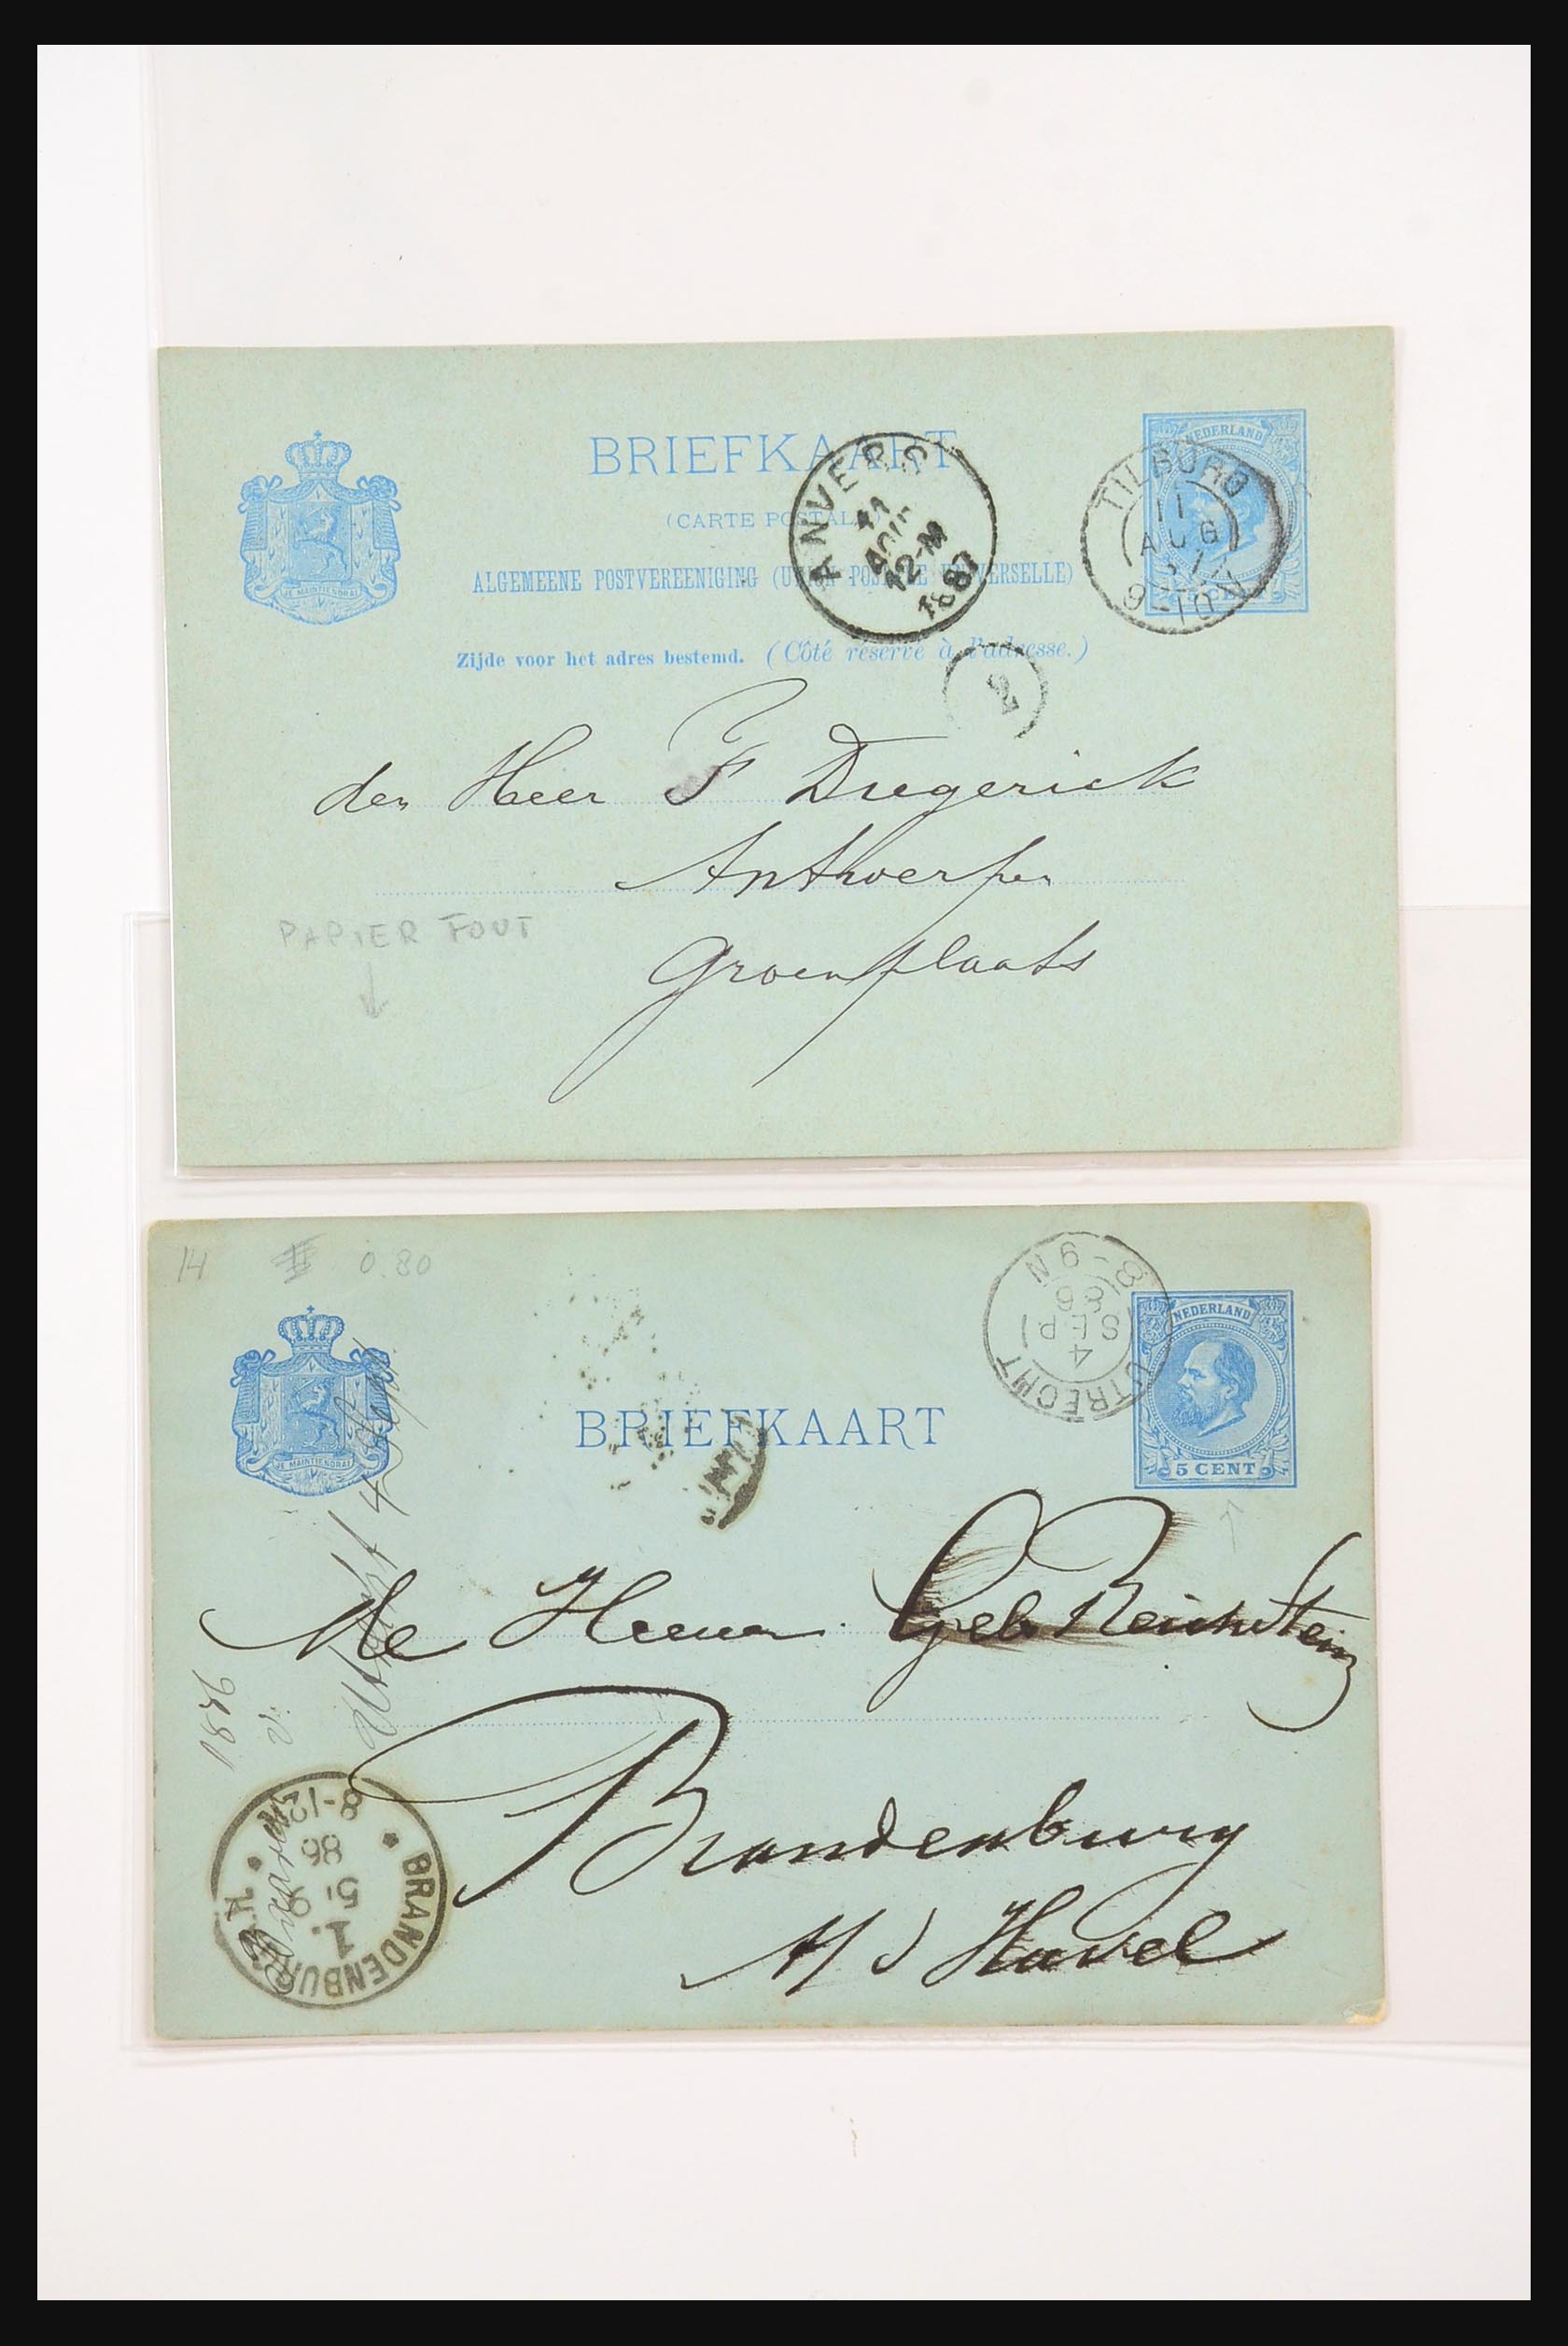 BRIEFKAART
(CARTE POSTALE)
ALGEMEENE POSTVEREENIGING (UNION POSTALE UNIVERSELLE)
Zijde voor het adres bestemd. (Côté réservé à l'adresse.)
JE MAINTIENDRAI
NEDERLAND
5 CENT
ANVERS
11
AOUT
12-M
1887
TILBURG
11
AUG
87
9-10V
2
den Heer F Diegerick
Antwerpen
Groenplaats
PAPIER FOUT
14 0.80
BRIEFKAART
JE MAINTIENDRAI
NEDERLAND
5 CENT
UTRECHT
4
SEP
86
8-9N
De Heeren Gebr Reichstein
Brandenburg
A/d Havel
1886
BRANDENBURG
1.
5. 9
86
8-12